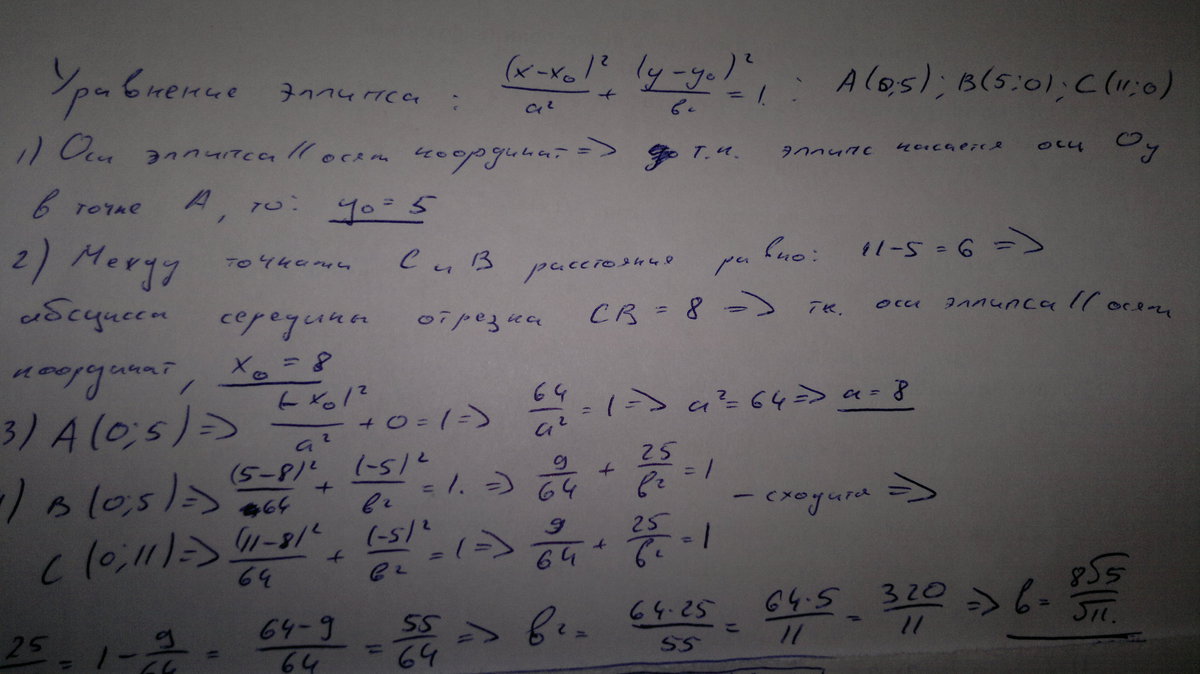 Уравнение эллипса: (x-x₀)²/a² + (y-y₀)²/в² = 1. : A(0;5); B(5;0); C(11;0)
1) Оси эллипса // осям координат => т.к. эллипс касается оси Oy
в точке A, то: y₀ = 5
2) Между точками C и B расстояния равно: 11-5 = 6 =>
абсцисса середины отрезка CB = 8 => т.к. оси эллипса // осям
координат, x₀ = 8
3) A(0;5) => (-x₀)²/a² + 0 = 1 => 64/a² = 1 => a² = 64 => a = 8
) B(0;5) => (5-8)²/64 + (-5)²/в² = 1. => 9/64 + 25/в² = 1
- сходится =>
C (0;11) => (11-8)²/64 + (-5)²/в² = 1 => 9/64 + 25/в² = 1
25/ = 1 - 9/64 = 64-9/64 = 55/64 => в² = 64·25/55 = 64·5/11 = 320/11 => в = 8√5/√11.